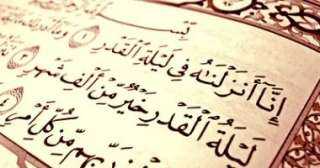 بِسْمِ
إِنَّا أَنزَلْنَٰهُ فِي لَيْلَةِ ٱلْقَدْرِ ١ وَمَا
لَيْلَةُ ٱلْقَدْرِ خَيْرٌ مِّنْ أَلْفِ شَهْرٍ ٣
رَبِّهِم مِّن كُلِّ أَمْرٍ ٤